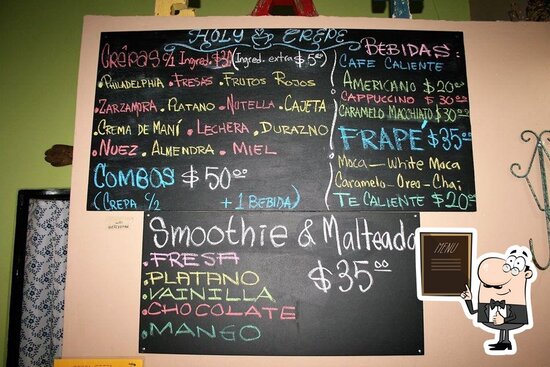 HOLY CREPE
CRÊPAS c/1 Ingred. $30 (Ingred. extra $5⁰⁰)
.PHILADELPHIA .FRESAS .FRUTOS ROJOS
.ZARZAMORA .PLATANO .NUTELLA .CAJETA
.CREMA DE MANÍ .LECHERA .DURAZNO
.NUEZ .ALMENDRA .MIEL
COMBOS $50.⁰⁰
(CREPA c/2 +1 BEBIDA)
BEBIDAS:
CAFE CALIENTE
AMERICANO $20⁰⁰
CAPPUCCINO $30⁰⁰
CARAMELO MACCHIATO $30⁰⁰
FRAPÉ $35⁰⁰
MOCA — WHITE MOCA
CARAMELO - OREO - CHAI
TE CALIENTE $20⁰⁰
Smoothie & Malteada
$35⁰⁰
.FRESA
.PLATANO
.VAINILLA
.CHOCOLATE
.MANGO
MENU